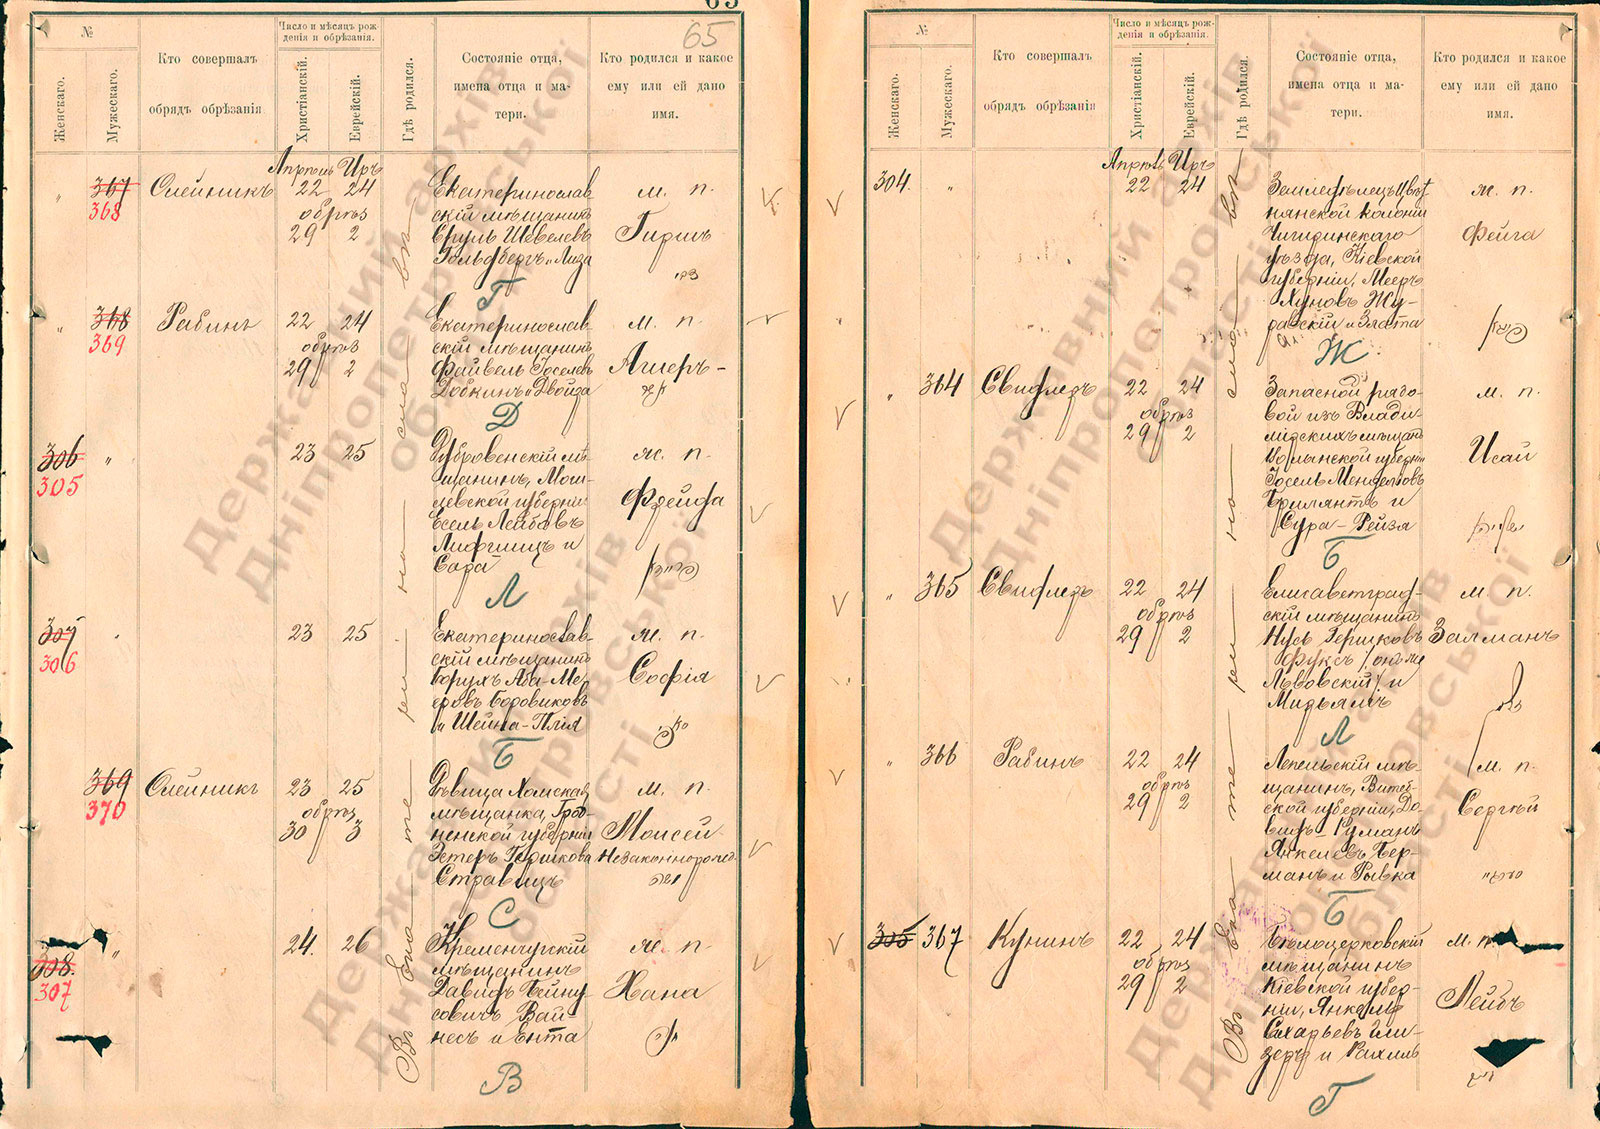 65
№
Женскаго.
Мужескаго.
Кто совершалъ
обрядъ обрѣзанія
Число и мѣсяцъ рож-
денія и обрѣзанія.
Христіанскій.
Еврейскій.
Гдѣ родился.
Состояніе отца,
имена отца и ма-
тери.
Кто родился и какое
ему или ей дано
имя.
Апрѣль Иръ
„ 367 Олейникъ 22 24
368
обрѣз
29 2
Екатеринослав-
скій мѣщанинъ
Сруль Шевелевъ
Гольдбергъ и Лиза
м. п.
Гиршъ
Г
„ 368 Рабинъ 22 24
369
обрѣз
29 2
Екатеринослав-
скій мѣщанинъ
Файвель Іоселевъ
Добкинъ и Двойда
м. п.
Ашеръ-
Д
306 „ 23 25
305
Дубровенскій мѣ-
щанинъ, Моги-
левской губерніи
Есель Лейбовъ
Лифшицъ и
Сара
ж. п.
Фрейда
Л
307 „ 23 25
306
Екатеринослав-
скій мѣщанинъ
Борухъ Аба-Ме-
еровъ Боровиковъ
и Шейна-Плія
ж. п.
Софія
Б
369 Олейникъ 23 25
370
обрѣз
30 3
Дѣвица Хомская
мѣщанка, Грод-
ненской губерніи
Эстеръ Гершкова
Стравицъ
м. п.
Моисей
Незаконнорожд.
С
308. „ 24. 26
307
Кременчугскій
мѣщанинъ
Давидъ Бейну-
совичъ Вай-
несъ и Ента
ж. п.
Хана
В
Въ Екатеринославѣ
№
Женскаго.
Мужескаго.
Кто совершалъ
обрядъ обрѣзанія
Число и мѣсяцъ рож-
денія и обрѣзанія.
Христіанскій.
Еврейскій.
Гдѣ родился.
Состояніе отца,
имена отца и ма-
тери.
Кто родился и какое
ему или ей дано
имя.
Апрѣль Иръ
304. „ 22 24
Земледѣлецъ
нянской колоніи
Чигиринскаго
уѣзда, Кіевской
губерніи, Мееръ
Хуновъ Жу-
равскій и Злата
ж. п.
Фейга
Ж
„ 364 Свифлезъ 22 24
обрѣз
29 2
Запасной рядо-
вой изъ Влади-
мірскихъ мѣщанъ
Волынской губерніи
Іосель Менделевъ
Брилянтъ и
Сура-Рейза
м. п.
Исай
Б
„ 365 Свифлезъ 22 24
обрѣз
29 2
Елисаветград-
скій мѣщанинъ
Нусъ Гершковъ
Фуксъ (онъ же
Львовскій) и
Мирьямъ
м. п.
Залманъ
Л
„ 366 Рабинъ 22 24
обрѣз
29 2
Лепельскій мѣ-
щанинъ, Витеб-
ской губерніи, До-
видъ-Румань
Янкелевъ Бер-
манъ и Рывка
м. п.
Сергѣй
Б
305 367 Кунинъ 22 24
обрѣз
29 2
Бѣлоцерковскій
мѣщанинъ
Кіевской губер-
ніи, Янкель
Сахарьевъ Гли-
зеръ и Рахиль
м. п.
Лейбъ
Г
Въ Екатеринославѣ
Державний архів
Дніпропетровської
області